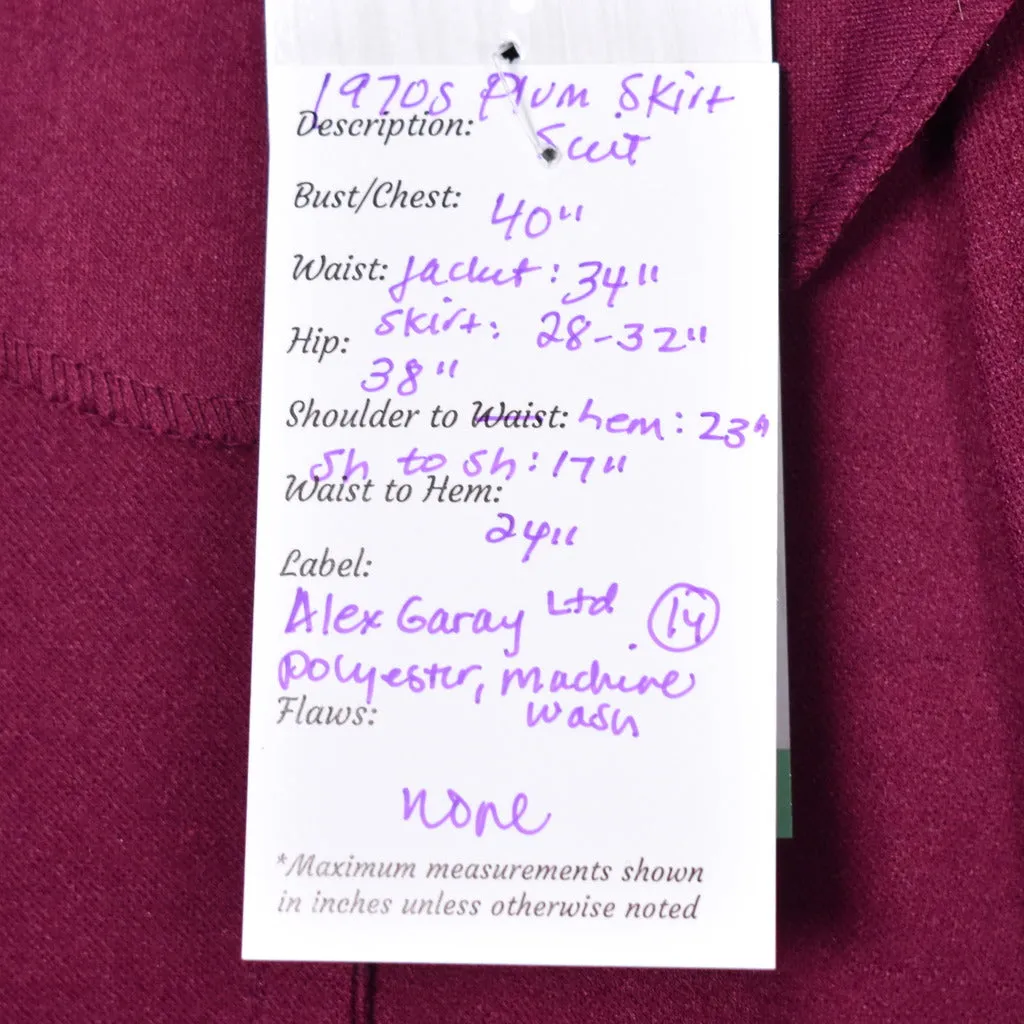 1970s Plum Skirt
Description: Suit
Bust/Chest: 40"
Waist: jacket: 34"
skirt: 28-32"
Hip:
38"
Shoulder to Waist: hem: 23"
Sh to sh: 17"
Waist to Hem:
24"
Label:
Alex Garay Ltd. 14
polyester, machine
Flaws: wash
none
*Maximum measurements shown
in inches unless otherwise noted